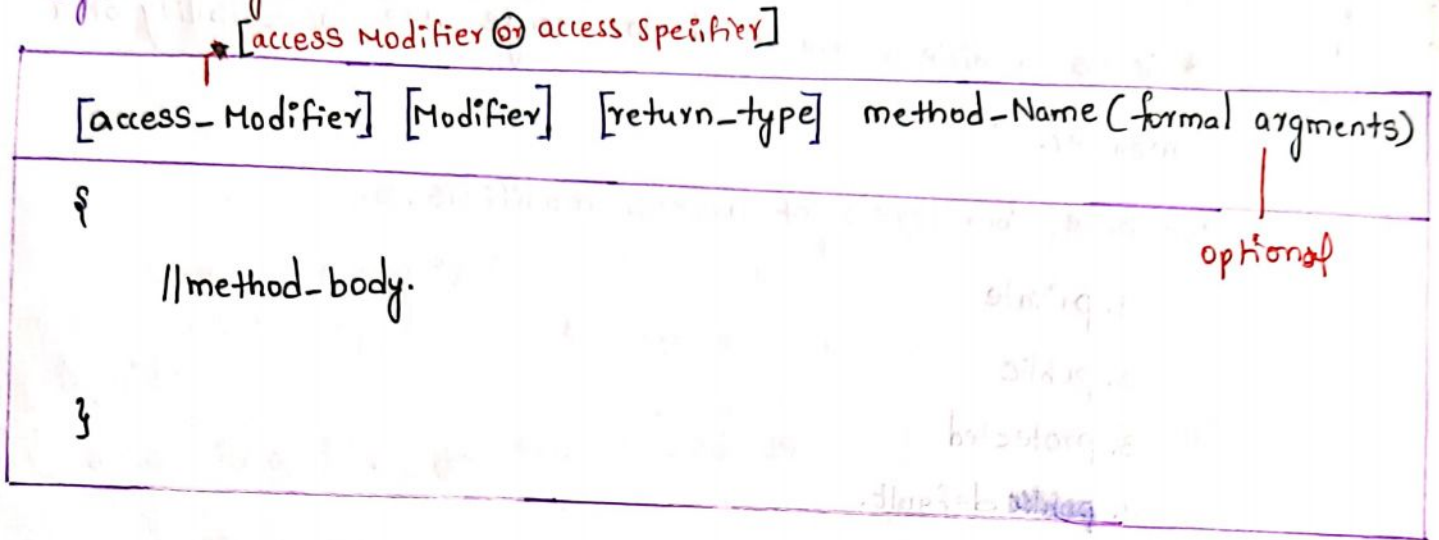 [access Modifier or access Speifier]
[access_Modifier] [Modifier] [return_type] method_Name (formal argments)
optional
{
//method_body.
}